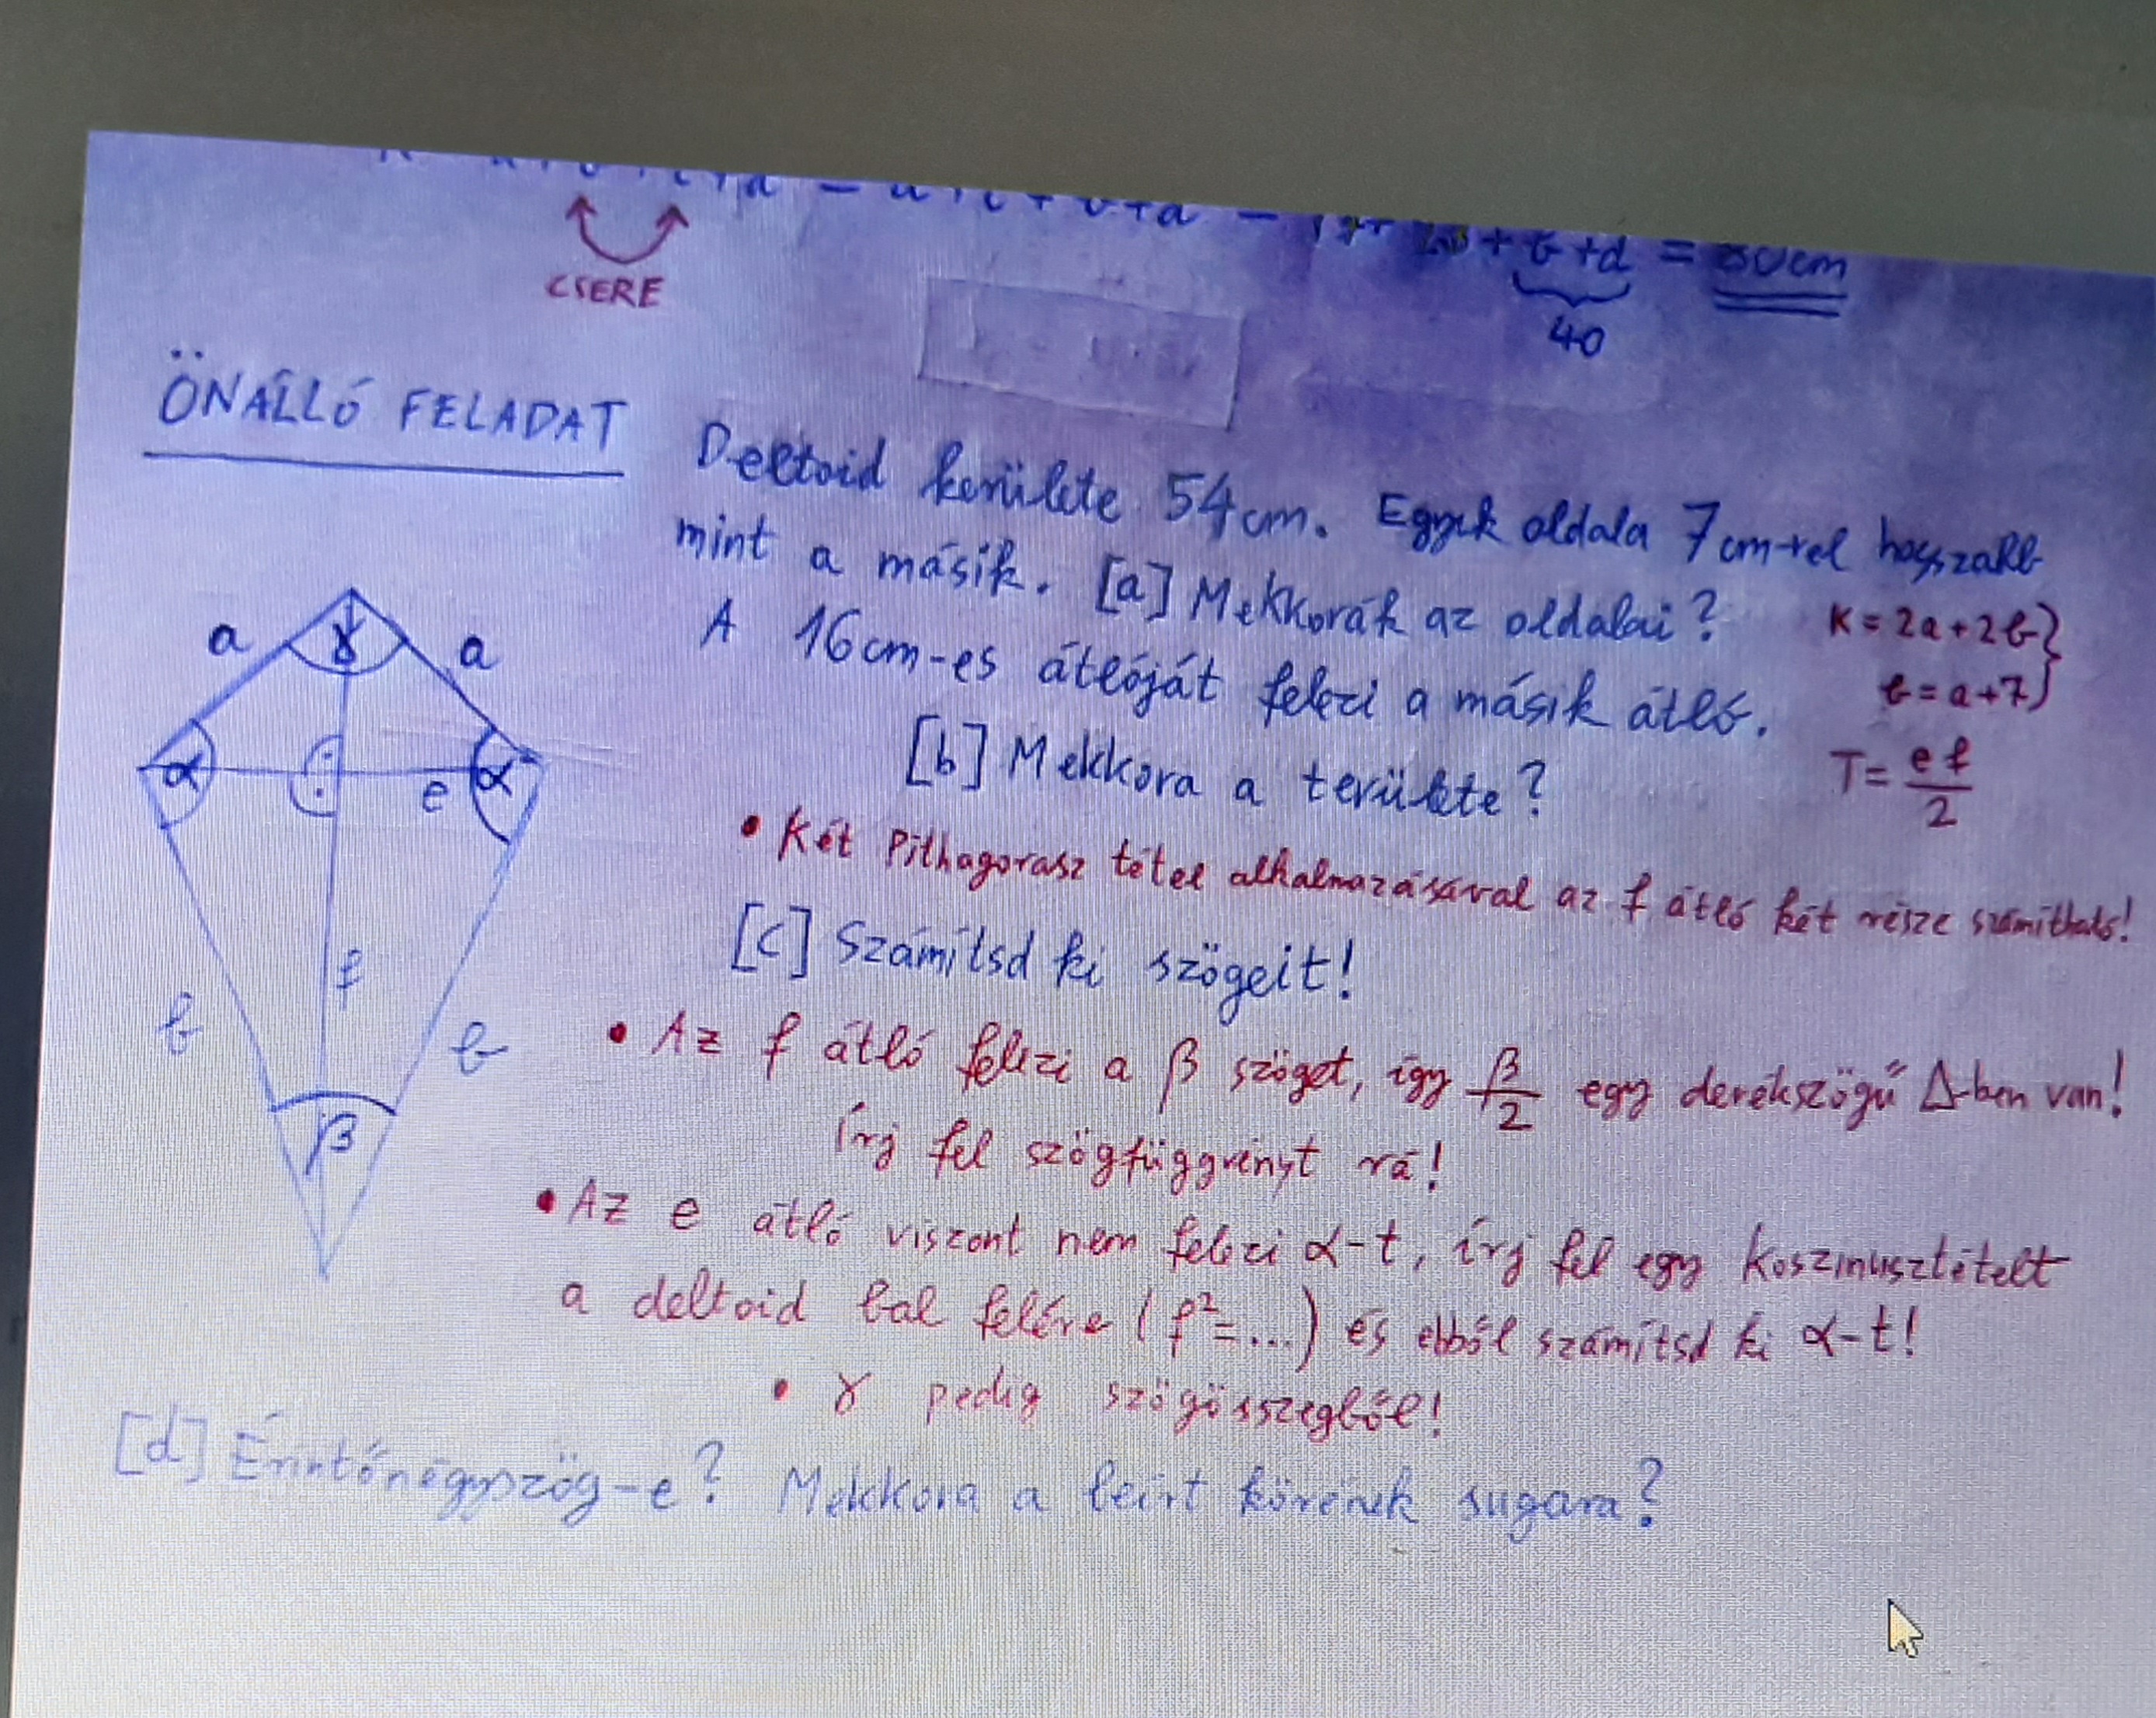 +b+d = 80cm
CSERE
40
ÖNÁLLÓ FELADAT
Deltoid kerülete 54cm. Egyik oldala 7cm-rel hosszabb
mint a másik. [a] Mekkorák az oldalai?
K = 2a+2b
b = a+7
A 16cm-es átlóját felezi a másik átló.
[b] Mekkora a területe?
T = ef/2
• Két Pithagorasz tétel alkalmazásával az f átló két része számítható!
[c] Számítsd ki szögeit!
• Az f átló felezi a β szöget, így β/2 egy derékszögű Δ-ben van!
Írj fel szögfüggvényt rá!
• Az e átló viszont nem felezi α-t, írj fel egy koszinusztételt
a deltoid bal felére (f²=...) és ebből számítsd ki α-t!
• γ pedig szögösszegből!
[d] Érintőnégyszög-e? Mekkora a beírt körének sugara?
a
γ
a
α
e
α
f
b
b
β